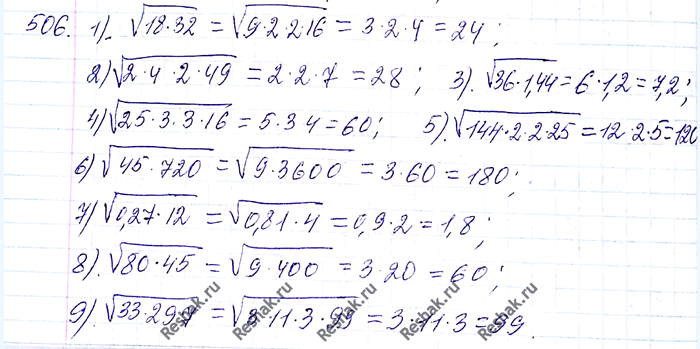 506. 1). √18·32 = √9·2·2·16 = 3·2·4 = 24;
2) √2·4·2·49 = 2·2·7 = 28; 3). √36·1,44 = 6·1,2 = 7,2;
4) √25·3·3·16 = 5·3 4 = 60; 5). √144·2·2·25 = 12·2·5 = 120
6) √45·720 = √9·3600 = 3·60 = 180;
7) √0,27·12 = √0,81·4 = 0,9·2 = 1,8;
8). √80·45 = √9·400 = 3·20 = 60;
9). √33·297 = √3·11·3·99 = 3·11·3 = 99.
Reshak.ru
Reshak.ru
Reshak.ru
Reshak.ru